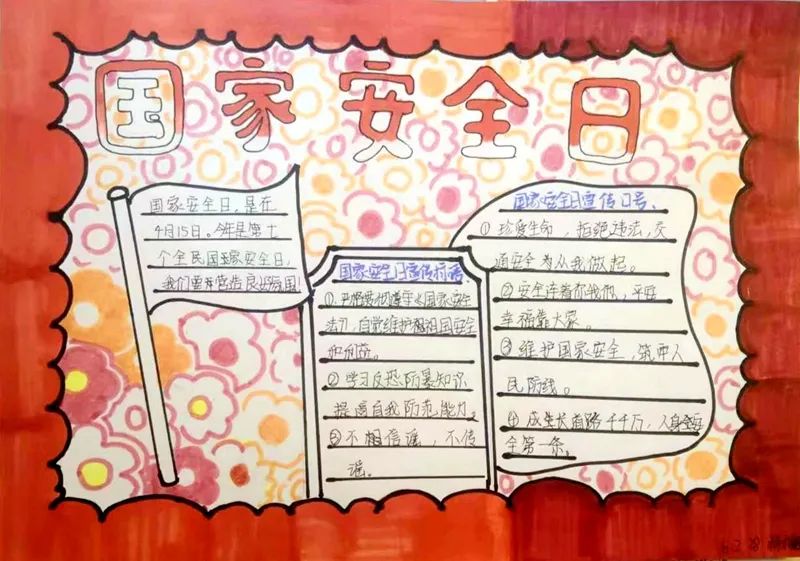 国家安全日
国家安全日,是在
4月15日。今年是第七
个全民国家安全日,
我们要营造良好氛围!
国家安全日宣传标语
①严格贯彻遵守《国家安全
法》,自觉维护祖国安全
和利益。
②学习反恐防暴知识
提高自我防范能力。
③不相信谣,不传
谣。
国家安全日宣传口号、
①珍爱生命,拒绝违法,交
通安全为从我做起。
②安全连着你我他,平安
幸福靠大家。
③维护国家安全,筑牢人
民防线。
④成生长道路千千万,人身安
全第一条。